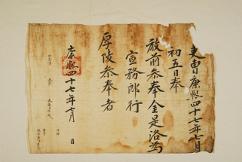 吏曹康熙四十七年十月
初五日奉
敎前參奉金是洛爲
宣務郞行
厚陵參奉者
康熙四十七年十月 日